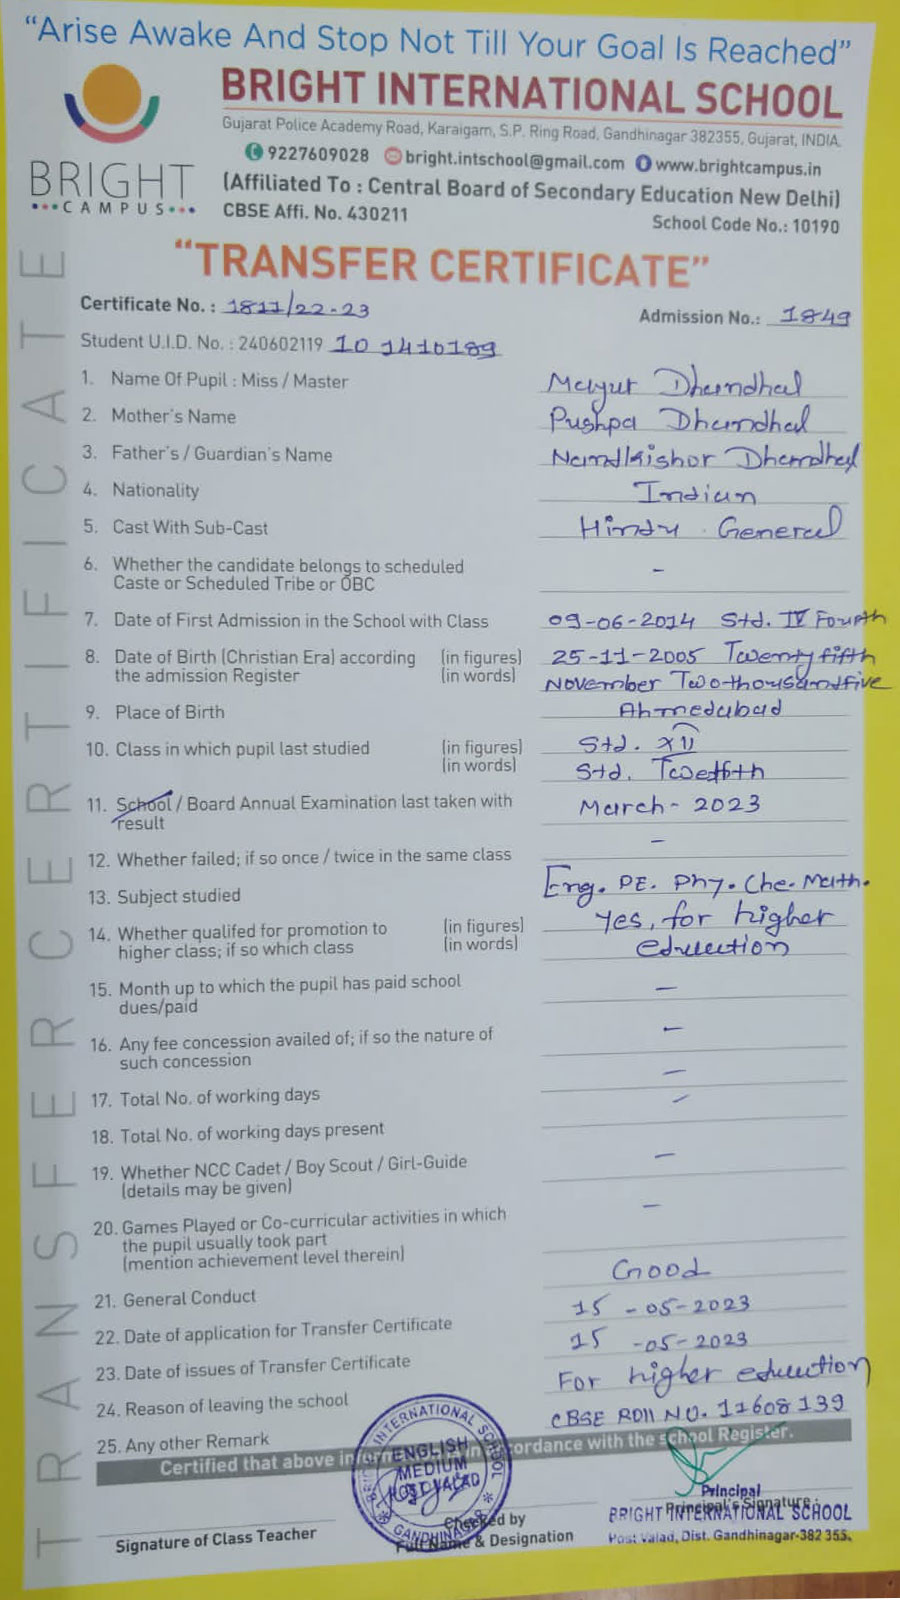 “Arise Awake And Stop Not Till Your Goal Is Reached”
BRIGHT INTERNATIONAL SCHOOL
Gujarat Police Academy Road, Karaigam, S.P. Ring Road, Gandhinagar 382355, Gujarat, INDIA.
9227609028 bright.intschool@gmail.com www.brightcampus.in
BRIGHT
CAMPUS
(Affiliated To : Central Board of Secondary Education New Delhi)
CBSE Affi. No. 430211 School Code No.: 10190
TRANSFER CERTIFICATE
“TRANSFER CERTIFICATE”
Certificate No. : 1811/22-23 Admission No.: 1849
Student U.I.D. No. : 240602119 10 1410189
1. Name Of Pupil : Miss / Master Mayur Dhandhal
2. Mother's Name Pushpa Dhandhal
3. Father's / Guardian's Name Nandkishor Dhandhal
4. Nationality Indian
5. Cast With Sub-Cast Hindu General
6. Whether the candidate belongs to scheduled -
Caste or Scheduled Tribe or OBC
7. Date of First Admission in the School with Class 09-06-2014 Std. IV Fourth
8. Date of Birth (Christian Era) according (in figures) 25-11-2005 Twenty fifth
the admission Register (in words) November Two thousand five
9. Place of Birth Ahmedabad
10. Class in which pupil last studied (in figures) Std. XII
(in words) Std. Twelfth
11. School / Board Annual Examination last taken with March - 2023
result
12. Whether failed; if so once / twice in the same class -
13. Subject studied Eng. PE. Phy. Che. Math.
14. Whether qualifed for promotion to (in figures) Yes, for higher
higher class; if so which class (in words) education
15. Month up to which the pupil has paid school -
dues/paid
16. Any fee concession availed of; if so the nature of -
such concession
17. Total No. of working days -
18. Total No. of working days present -
19. Whether NCC Cadet / Boy Scout / Girl-Guide -
(details may be given)
20. Games Played or Co-curricular activities in which -
the pupil usually took part
(mention achievement level therein)
21. General Conduct Good
22. Date of application for Transfer Certificate 15-05-2023
23. Date of issues of Transfer Certificate 15-05-2023
24. Reason of leaving the school For higher education
25. Any other Remark CBSE Roll NO. 11608139
Certified that above in accordance with the school Register.
BRIGHT INTERNATIONAL SCHOOL
ENGLISH
MEDIUM
POST VALAD
GANDHINAGAR
Principal
Principal's Signature
BRIGHT INTERNATIONAL SCHOOL
Post Valad, Dist. Gandhinagar-382 355.
Signature of Class Teacher
Checked by
Full Name & Designation